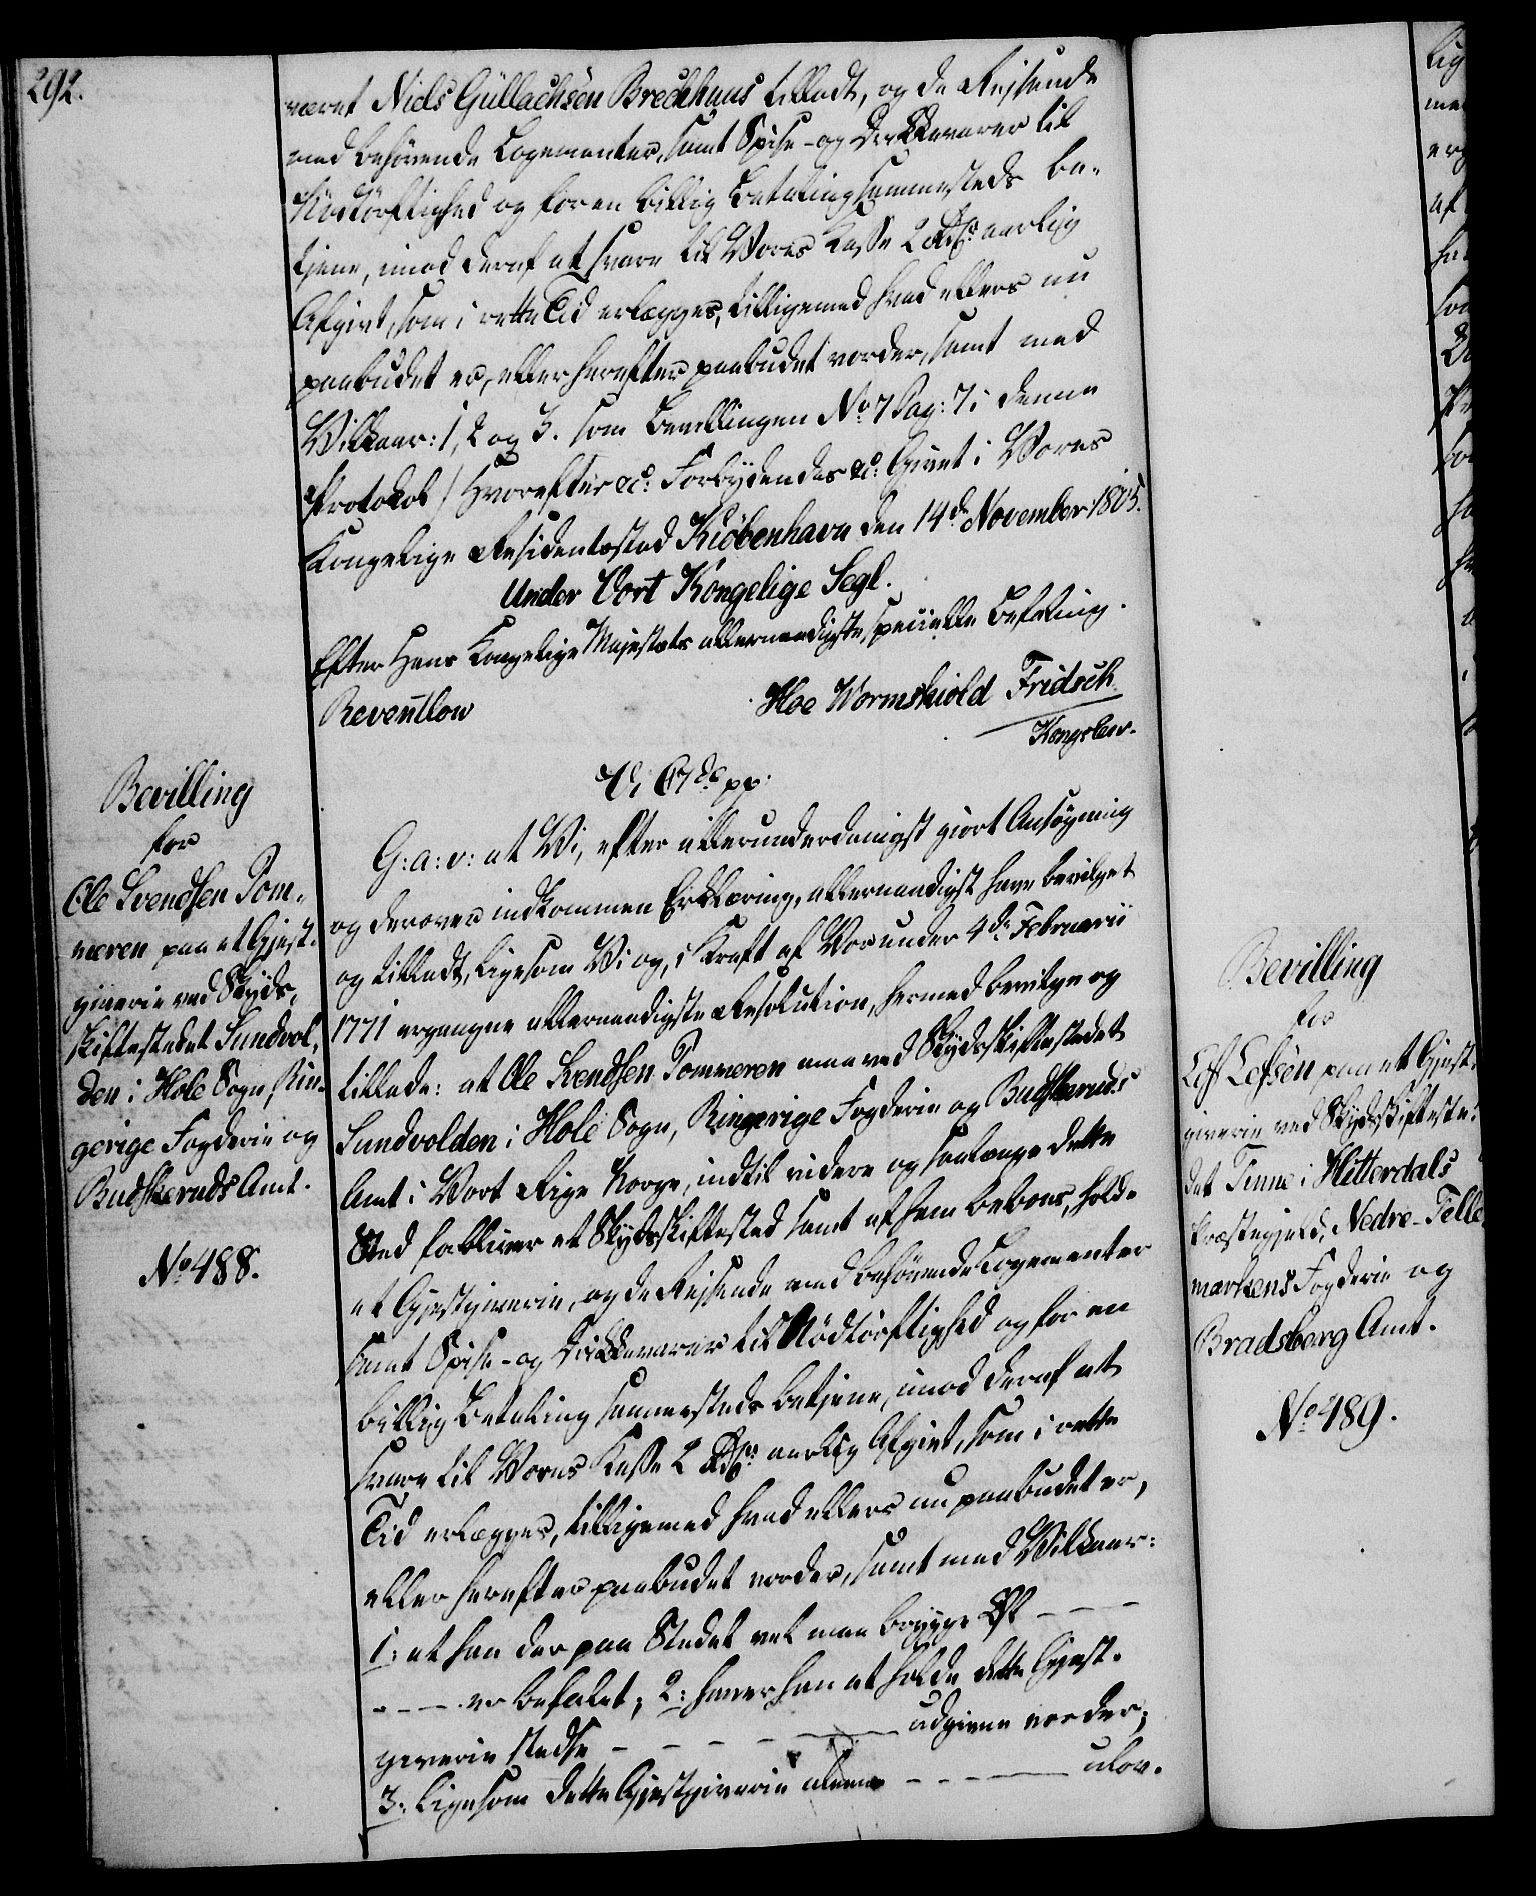 292.
været Niels Güllachsen Brechhuus tilladt, og de Reisende
med behövende Logementer, samt Spise- og Drikkevarer til
Nödtörftighed og for en billig Betaling sammesteds be-
tjene, imod deraf at svare til Vores Kasse 2 Rdlr. aarlig
Afgivt, som i rette Tid erlægges, tilligemed hvad ellers nu
paabudet er, eller herefter paabudet vorder, samt med
Vilkaar: 1, 2 og 3. som Bevillingen No 7 Pag: 7 i denne
Protokol / Hvorefter &c: Forbydendes &c: Givet i Vores
Kongelige Residentsstad Kiöbenhavn den 14de November 1805.
Under Vort Kongelige Segl.
Efter Hans Kongelige Majestæts allernaadigste specielle Befaling.
Reventlow Hoe Wormskiold Fridsch
Kongslew.
Bevilling
for
Ole Svendsen Pom-
meren paa et Gjest-
giverie ved Skyds-
skiftestedet Sundvol-
den i Hole Sogn, Rin-
gerige Fogderie og
Budskeruds Amt.
No 488.
V, C 7de pp.
G: a: v: at Vi, efter allerunderdanigst giort Ansögning
og derover indkommen Erklæring, allernaadigst have bevilget
og tilladt, ligesom Vi og, i Kraft af Vor under 4de Februarii
1771 ergangne allernaadigste Resolution, hermed bevilge og
tillade: at Ole Svendsen Pommeren maa ved Skydsskiftestedet
Sundvolden i Hole Sogn, Ringerige Fogderie og Budskeruds
Amt i Vort Rige Norge, indtil videre og saalænge dette
Sted forbliver et Skydsskiftested samt af ham beboes, holde
et Gjestgiverie, og de Reisende med behövende Logementer
samt Spise- og Drikkevarer til Nödtörftighed og for en
billig Betaling sammesteds betjene, imod deraf at
svare til Vores Kasse 2 Rdlr. aarlig Afgivt, som i rette
Tid erlægges, tilligemed hvad ellers nu paabudet er,
eller herefter paabudet vorder, samt med Vilkaar:
1: at han der paa Stedet vel maa brygge Öl - - -
- - - er befalet; 2: haver han at holde dette Gjest-
giverie stedse - - - - - udgivne vorder;
3: ligesom dette Gjestgiverie alene - - - - - ulov-
Bevilling
for
Lef Lefsen paa et Gjest-
giverie ved Skydsskifteste-
det Tinne i Hitterdals
Præstegjeld, Nedre-Telle-
markens Fogderie og
Bradsberg Amt.
No 489.